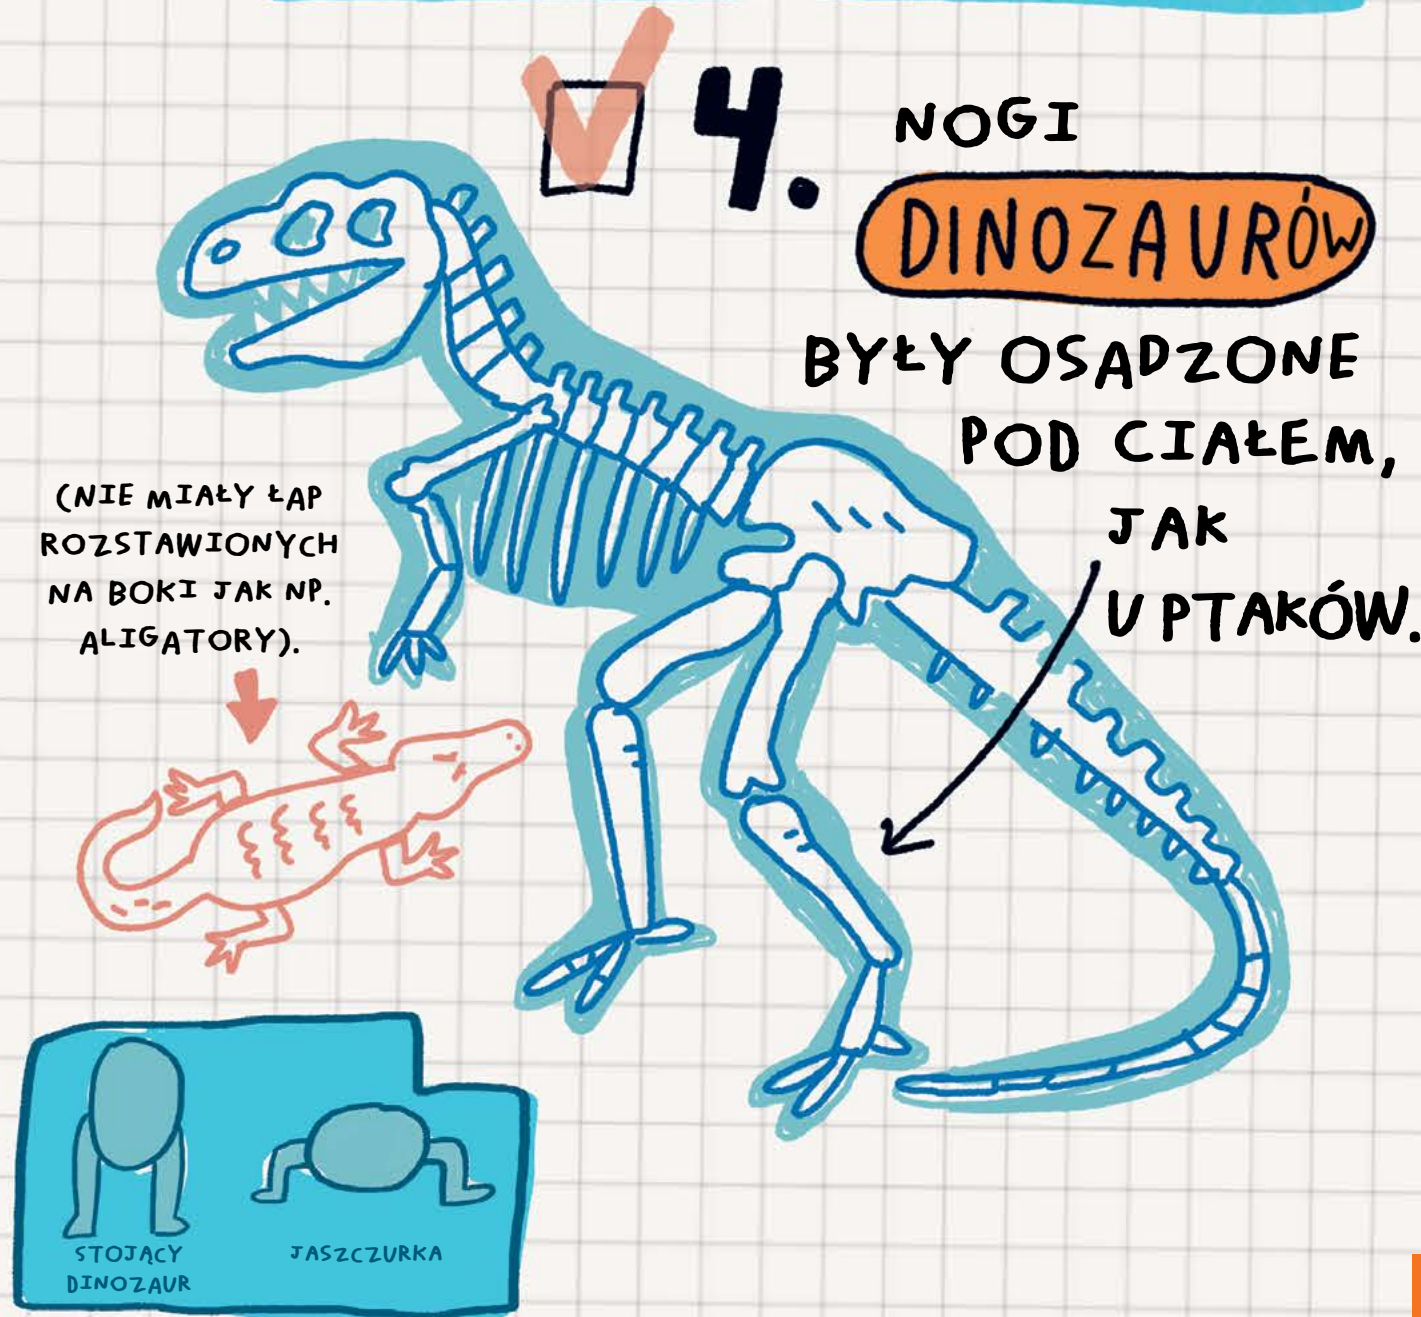 4.
NOGI
DINOZAURÓW
BYŁY OSADZONE
POD CIAŁEM,
JAK
U PTAKÓW.
(NIE MIAŁY ŁAP
ROZSTAWIONYCH
NA BOKI JAK NP.
ALIGATORY).
STOJĄCY
DINOZAUR
JASZCZURKA